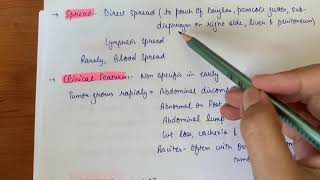 → Spread:- Direct Spread (to pouch of Douglas, paracolic gutter, sub-
diaphragm on right side, liver & peritoneum)
Lymphatic Spread
Rarely, Blood Spread
→ Clinical Features:- Non specific in early
Tumor grows rapidly → Abdominal discom
Abnormal or Post
Abdominal lump
Wt loss, cachexia &
Ascites - Often with